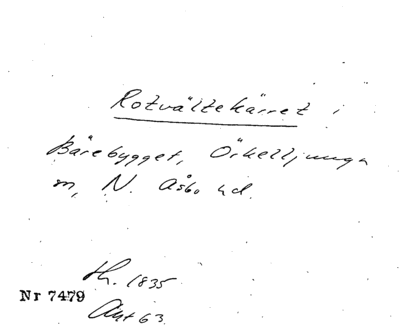 Rotvältekärret i
Bärebygget, Örkelljunga
m, N. Åsbo hd.
th. 1835
Nr 7479
Akt 63